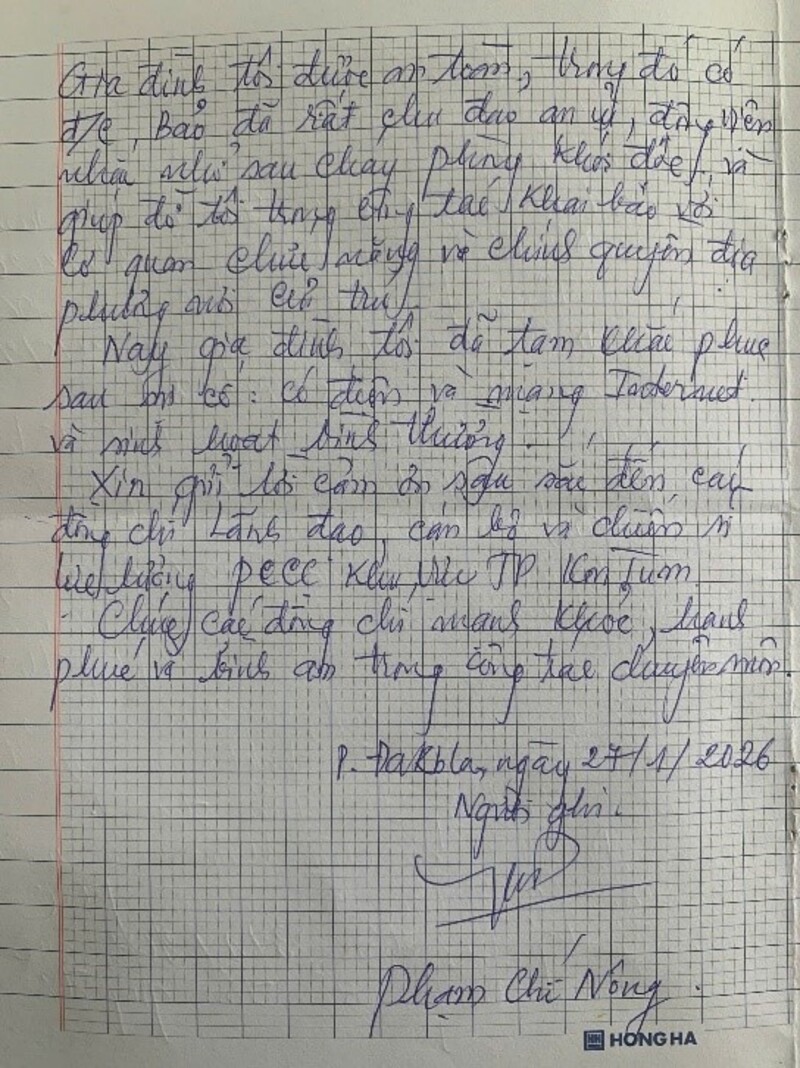 Gia đình tôi được an toàn, trong đó có
đ/c, Bảo đã rất chu đáo an ủi, động viên
nhắc nhở sau cháy phòng khói độc, và
giúp đỡ tôi trong công tác khai báo với
cơ quan chức năng và chính quyền địa
phương nơi cư trú.
Nay gia đình tôi đã tạm khắc phục
sau sự cố: có điện và mạng Internet.
và sinh hoạt bình thường.
Xin gửi lời cảm ơn sâu sắc đến các
đồng chí Lãnh đạo, cán bộ và chiến sĩ
lực lượng PCCC khu vực TP Kon Tum
- Chúc các đồng chí mạnh khỏe, hạnh
phúc và bình an trong công tác chuyên môn.
P. ĐakBla, ngày 27/1/2026
Người ghi.
Phạm Chí Nông.
HONG HA